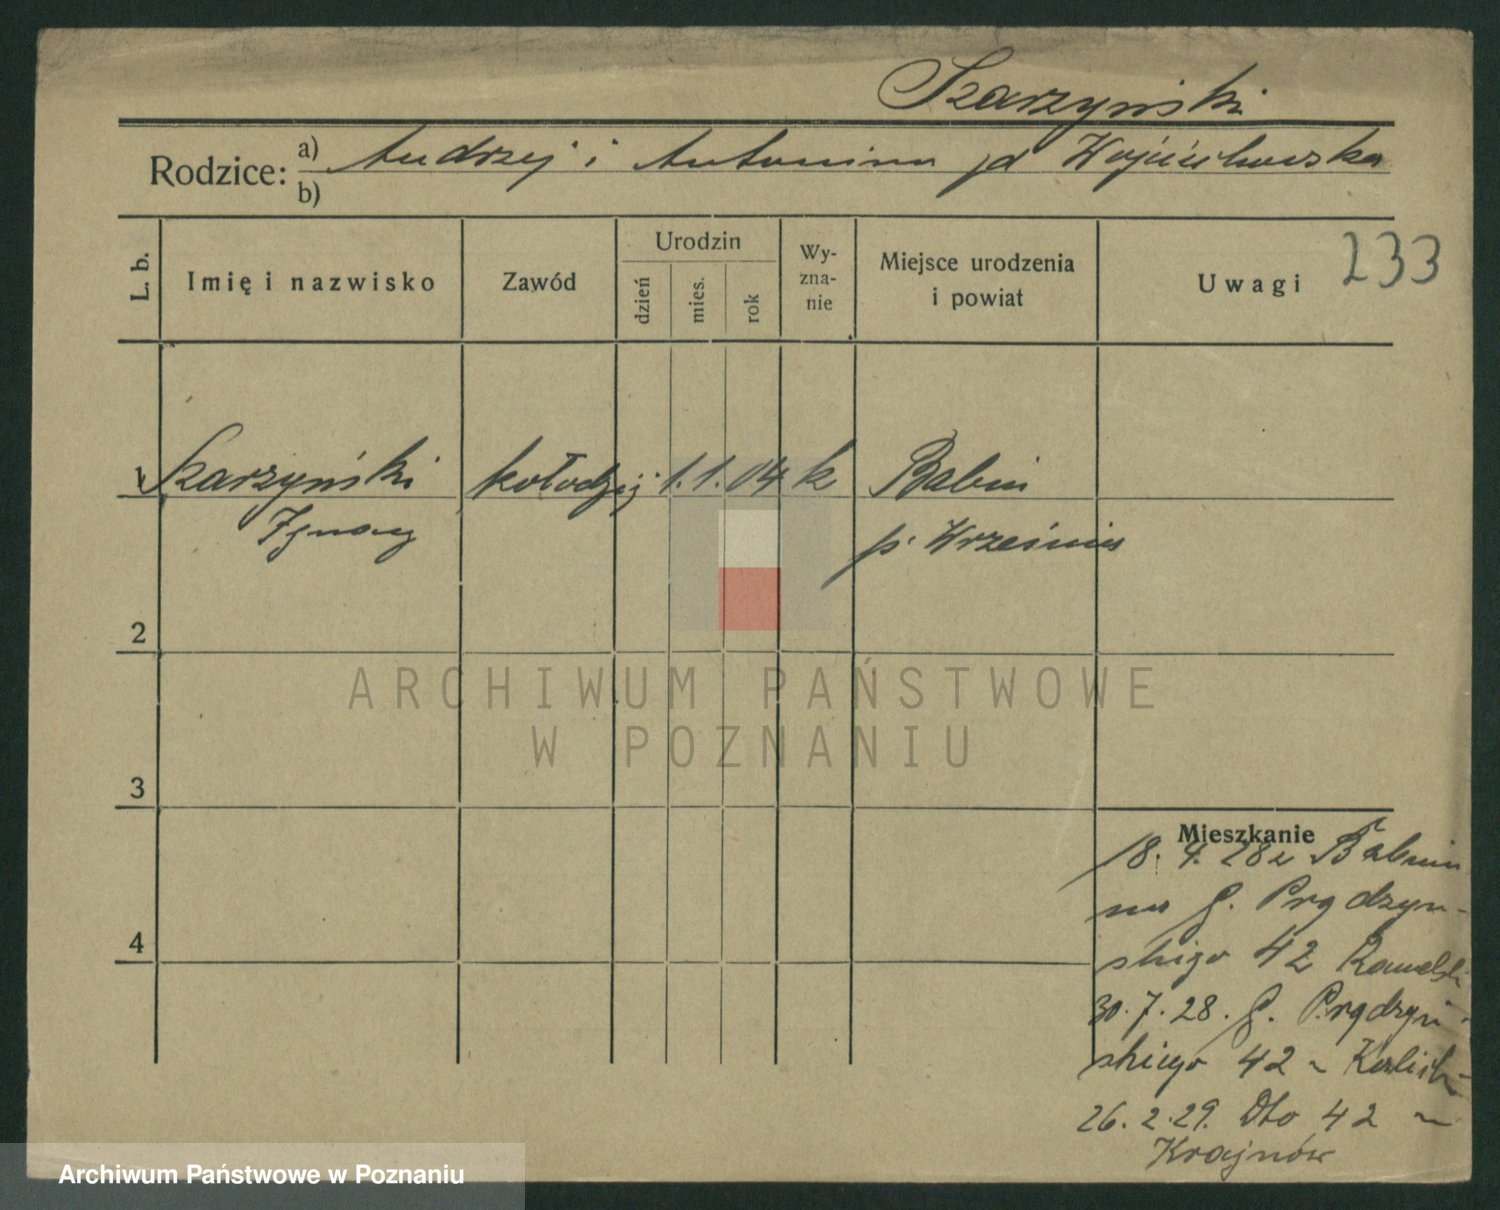 Szarzyński
Rodzice: a) Andrzej i Antonina zd Wojciechowska
b)
L. b.
Imię i nazwisko
Zawód
Urodzin
dzień
mies.
rok
Wy-
zna-
nie
Miejsce urodzenia
i powiat
Uwagi
233
1 Szarzyński kołodziej 1. 1. 04 k Babin
Ignacy p. Września
2
3
4
Mieszkanie
18. 4. 28 z Babina
na G. Prądzyń-
skiego 42
30. 7. 28. G. Prądzyń-
skiego 42 ~
26. 2. 29. Dto 42 ~
Krajnów
ARCHIWUM PAŃSTWOWE
W POZNANIU
Archiwum Państwowe w Poznaniu